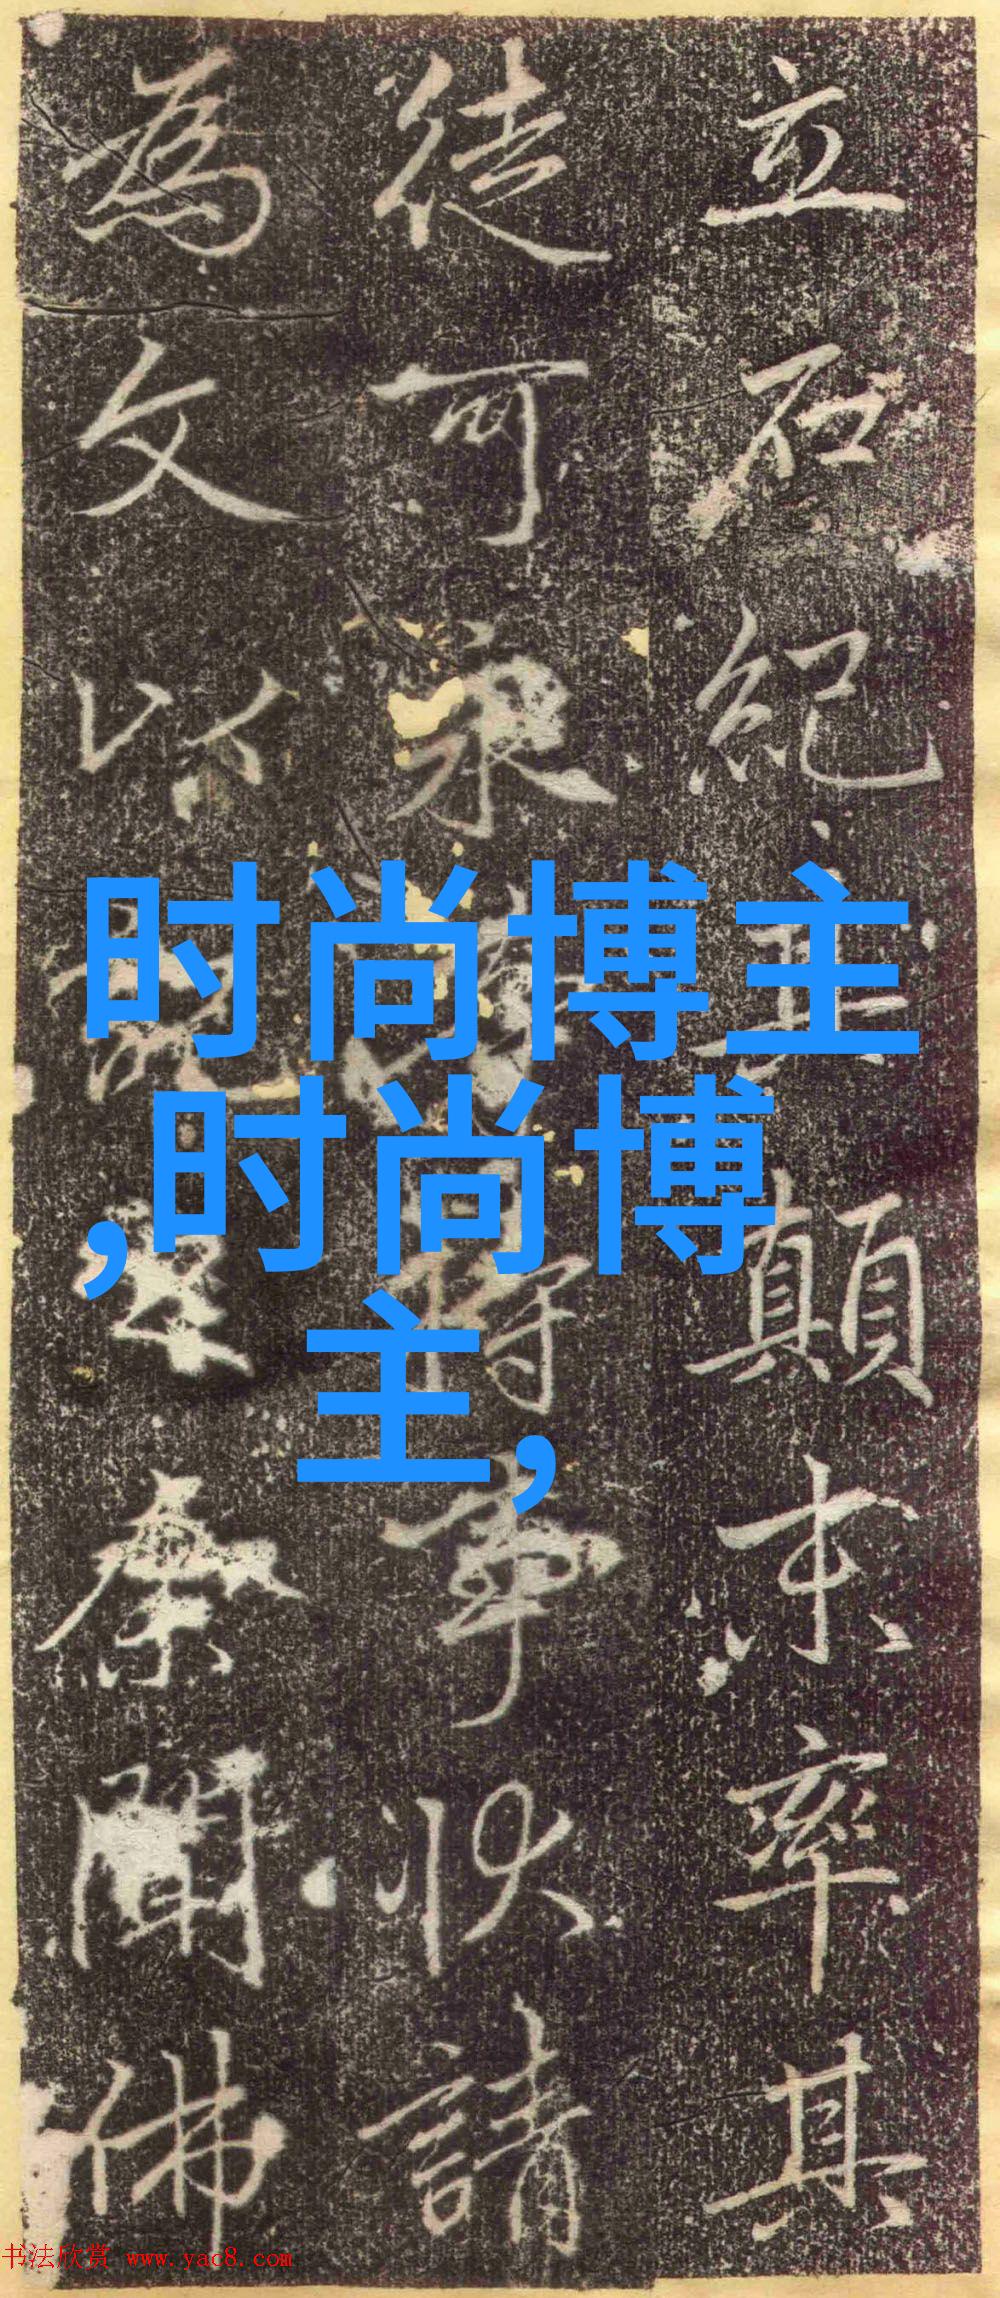 立石紀其顛末率其
徒可持事狀請
為文以余聞佛
时尚博主
,时尚博
主,
书法欣赏 www.yac8.com